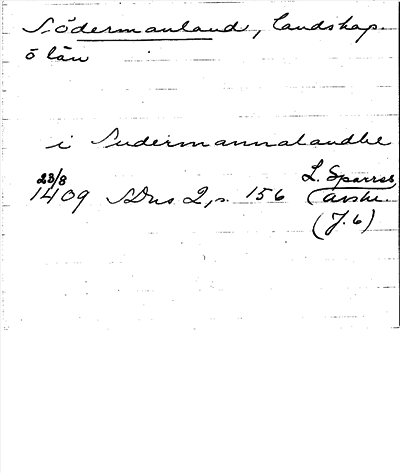 Södermanland, landskap
o län
i Sudermannalandhe
23/8
1409 SDns 2, s. 156 L. Sparres
(avskr.
(J. 6)